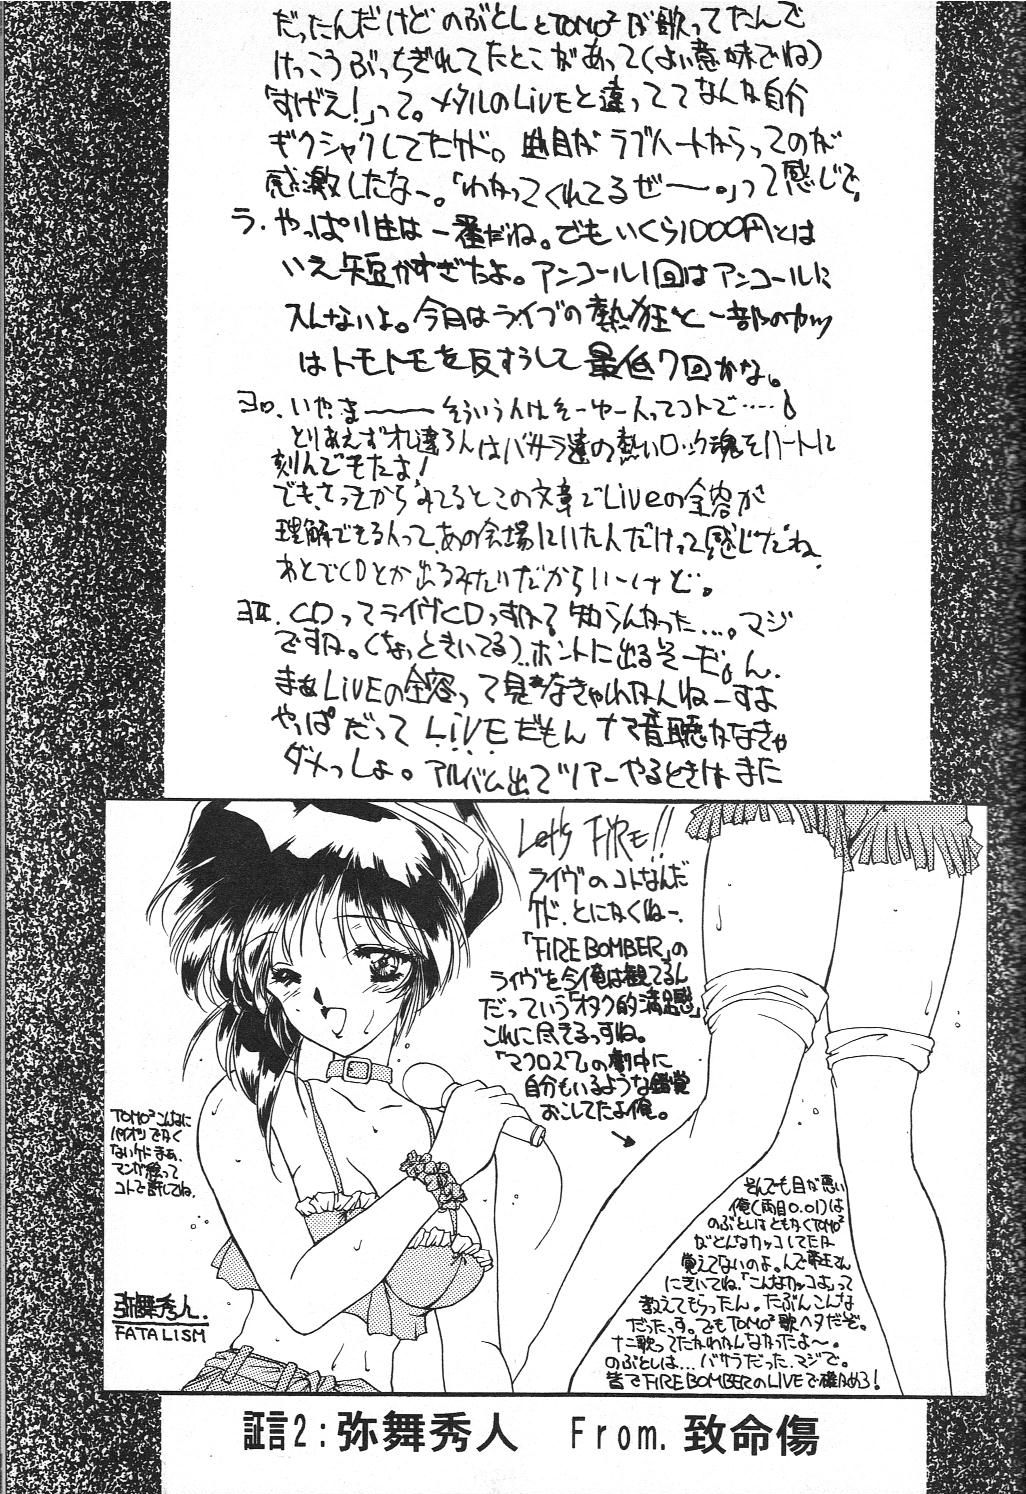 だったんだけどのぶとしとTOMO²が歌ってたんで
けっこうぶっちぎれてたとこがあって(よい意味でね)
「すげえ!」って。メタルのLiVEと違っててなんな自分
ギクシャクしてたケド。曲目がラブハートからってのが
感激したなー。「わかってくれてるぜー。」って感じで。
ラ. やっぱり生は一番だね。でもいくら1000円とは
いえ短かすぎたよ。アンコール1回はアンコールに
入んないよ。今日はライブの熱狂と一部のヤツ
はトモトモを反すうして最低7回かな。
ヨロ. いや、まーーそういう人はそーゆー人ってコトで……
とりあえずオレ達ろんはバサラ達の熱いロック魂をハートに
刻んでもたよ!
でも、さっきからみてるとこの文章でLiveの全容が
理解できる人って、あの会場にいた人だけって感じだね
あとでCDとか出るみたいだからいーけど。
CDってライヴCDっすね? 知らんなかった…。マジ
ですね。(ちょっときいてる)、ホントに出るそーだ。ん、
まぁLiVEの全容って見なきゃわかんねーすよ
やっぱだって LiVEだもん ナマ音聴かなきゃ
ダメっしょ。アルバム出てツアーやるときはまた
Let's FiRe!!
ライヴのコトなんだ
ケド、とにかくねー、
「FIRE BOMBER」の
ライヴを今俺は観てるん
だっていう「オタク的満足感」
これに尽きるっすね。
「マクロス7」の劇中に
自分もいるような錯覚
おこしてたよ俺。
TOMO²こんなに
パイオツでかく
ないケドまぁ、
マンガ絵って
コトで許してね。
弥舞秀人.
FATALISM
それでも目が悪い
俺(両目0.01)は
のぶとしはともかくTOMO²
がどんなカッコしてたか
覚えてないのよ。んで弟さん
にきいてね、「こんなカッコよ」って
教えてもらったん。たぶんこんな
だったっす。でもTOMO²歌ヘタだぞ。
ナニ歌ってたかわかんなかったよ〜。
のぶとしは…バサラだった、マジで。
皆でFIRE BOMBERのLIVEで確かめろ!
証言2:弥舞秀人 From.致命傷